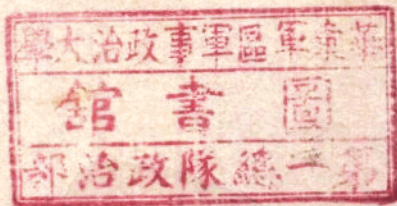 華東軍區軍事政治大學
圖書館
第二總隊政治部